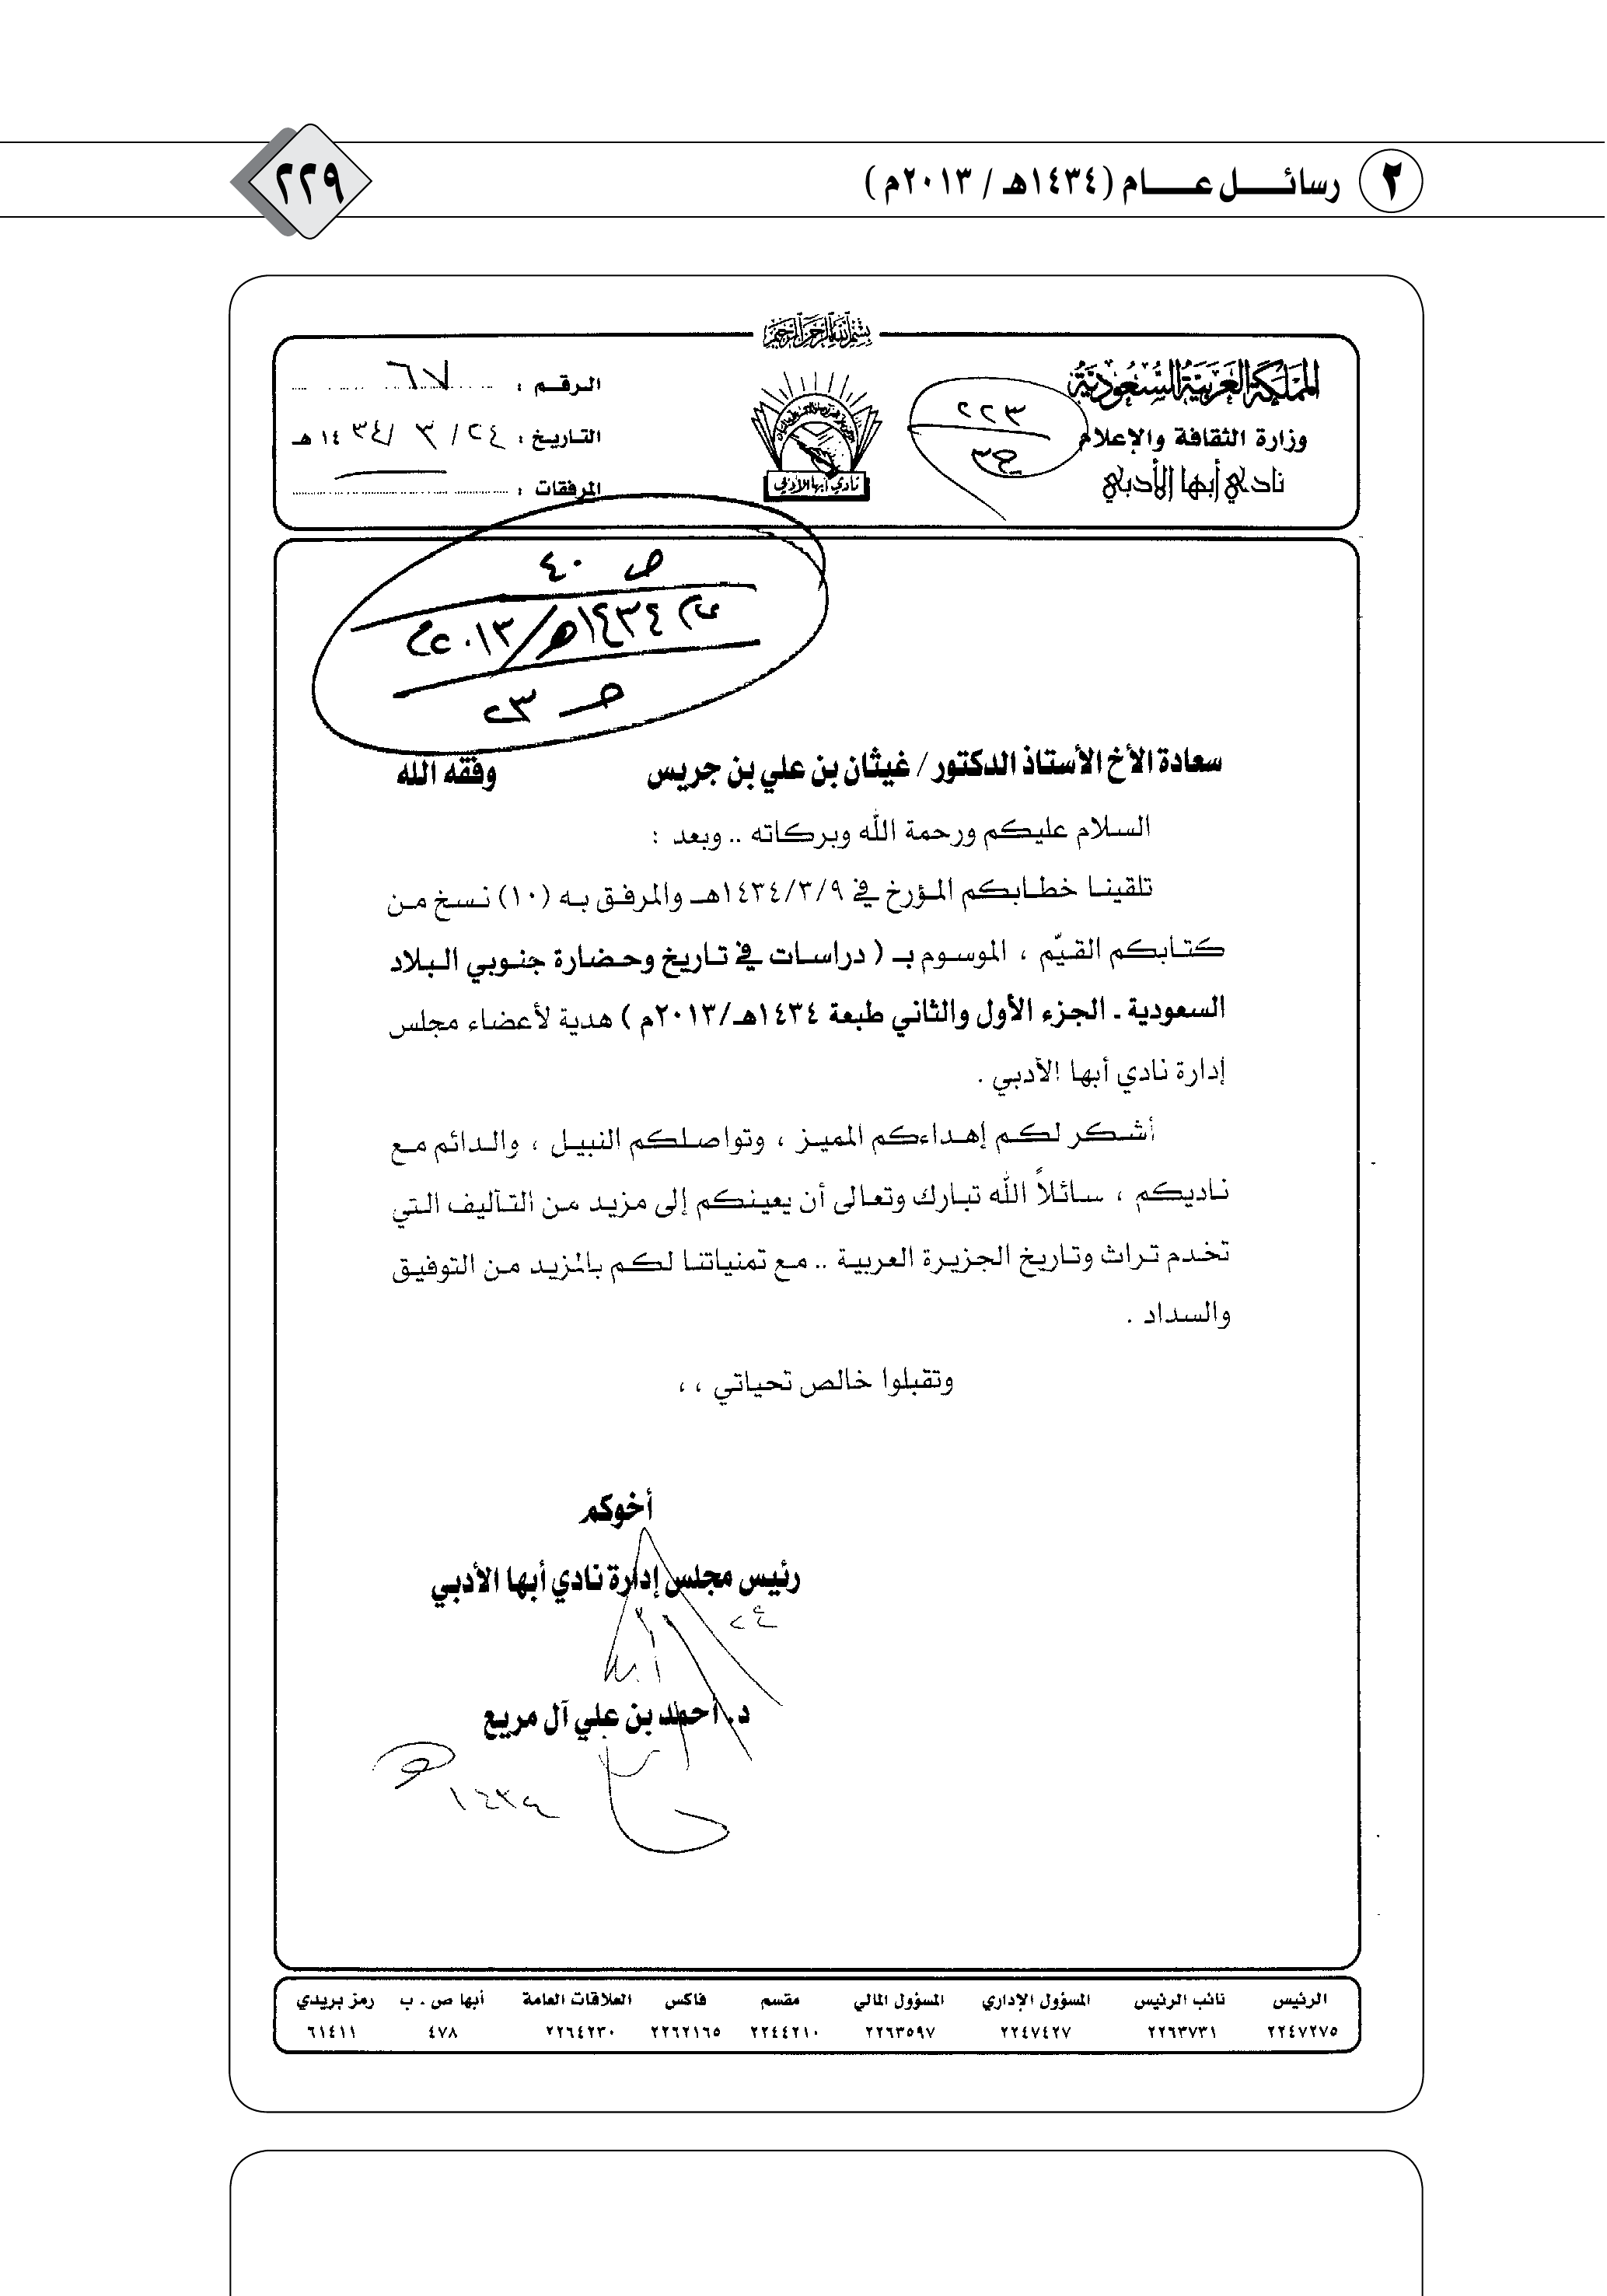 ٢ رسائل عام (١٤٣٤هـ / ٢٠١٣م)
٢٢٩
بسم الله الرحمن الرحيم
المملكة العربية السعودية
وزارة الثقافة والإعلام
نادي أبها الأدبي
٢٢٣
نادي أبها الأدبي
الرقم : ٦٧
التاريخ : ٢٤/ ٣ /١٤٣٤هـ
المرفقات :
ص ٤٠
١٤٣٤هـ/٢٠١٣م
٢٣
سعادة الأخ الأستاذ الدكتور / غيثان بن علي بن جريس وفقه الله
السلام عليكم ورحمة الله وبركاته .. وبعد :
تلقينا خطابكم المؤرخ في ١٤٣٤/٣/٩هـ والمرفق به (١٠) نسخ من
كتابكم القيّم ، الموسوم بـ ( دراسات في تاريخ وحضارة جنوبي البلاد
السعودية ـ الجزء الأول والثاني طبعة ١٤٣٤هـ/٢٠١٣م ) هدية لأعضاء مجلس
إدارة نادي أبها الأدبي .
أشكر لكم إهداءكم المميز ، وتواصلكم النبيل ، والدائم مع
ناديكم ، سائلاً الله تبارك وتعالى أن يعينكم إلى مزيد من التآليف التي
تخدم تراث وتاريخ الجزيرة العربية .. مع تمنياتنا لكم بالمزيد من التوفيق
والسداد .
وتقبلوا خالص تحياتي ، ،
أخوكم
رئيس مجلس إدارة نادي أبها الأدبي
د. أحمد بن علي آل مريع
١٤٣٤
الرئيس نائب الرئيس المسؤول الإداري المسؤول المالي مقسم فاكس العلاقات العامة أبها ص . ب رمز بريدي
٢٢٤٧٢٧٥ ٢٢٦٣٧٣١ ٢٢٤٧٤٢٧ ٢٢٦٣٥٩٧ ٢٢٤٤٢١٠ ٢٢٦٢١٦٥ ٢٢٦٤٢٣٠ ٤٧٨ ٦١٤١١